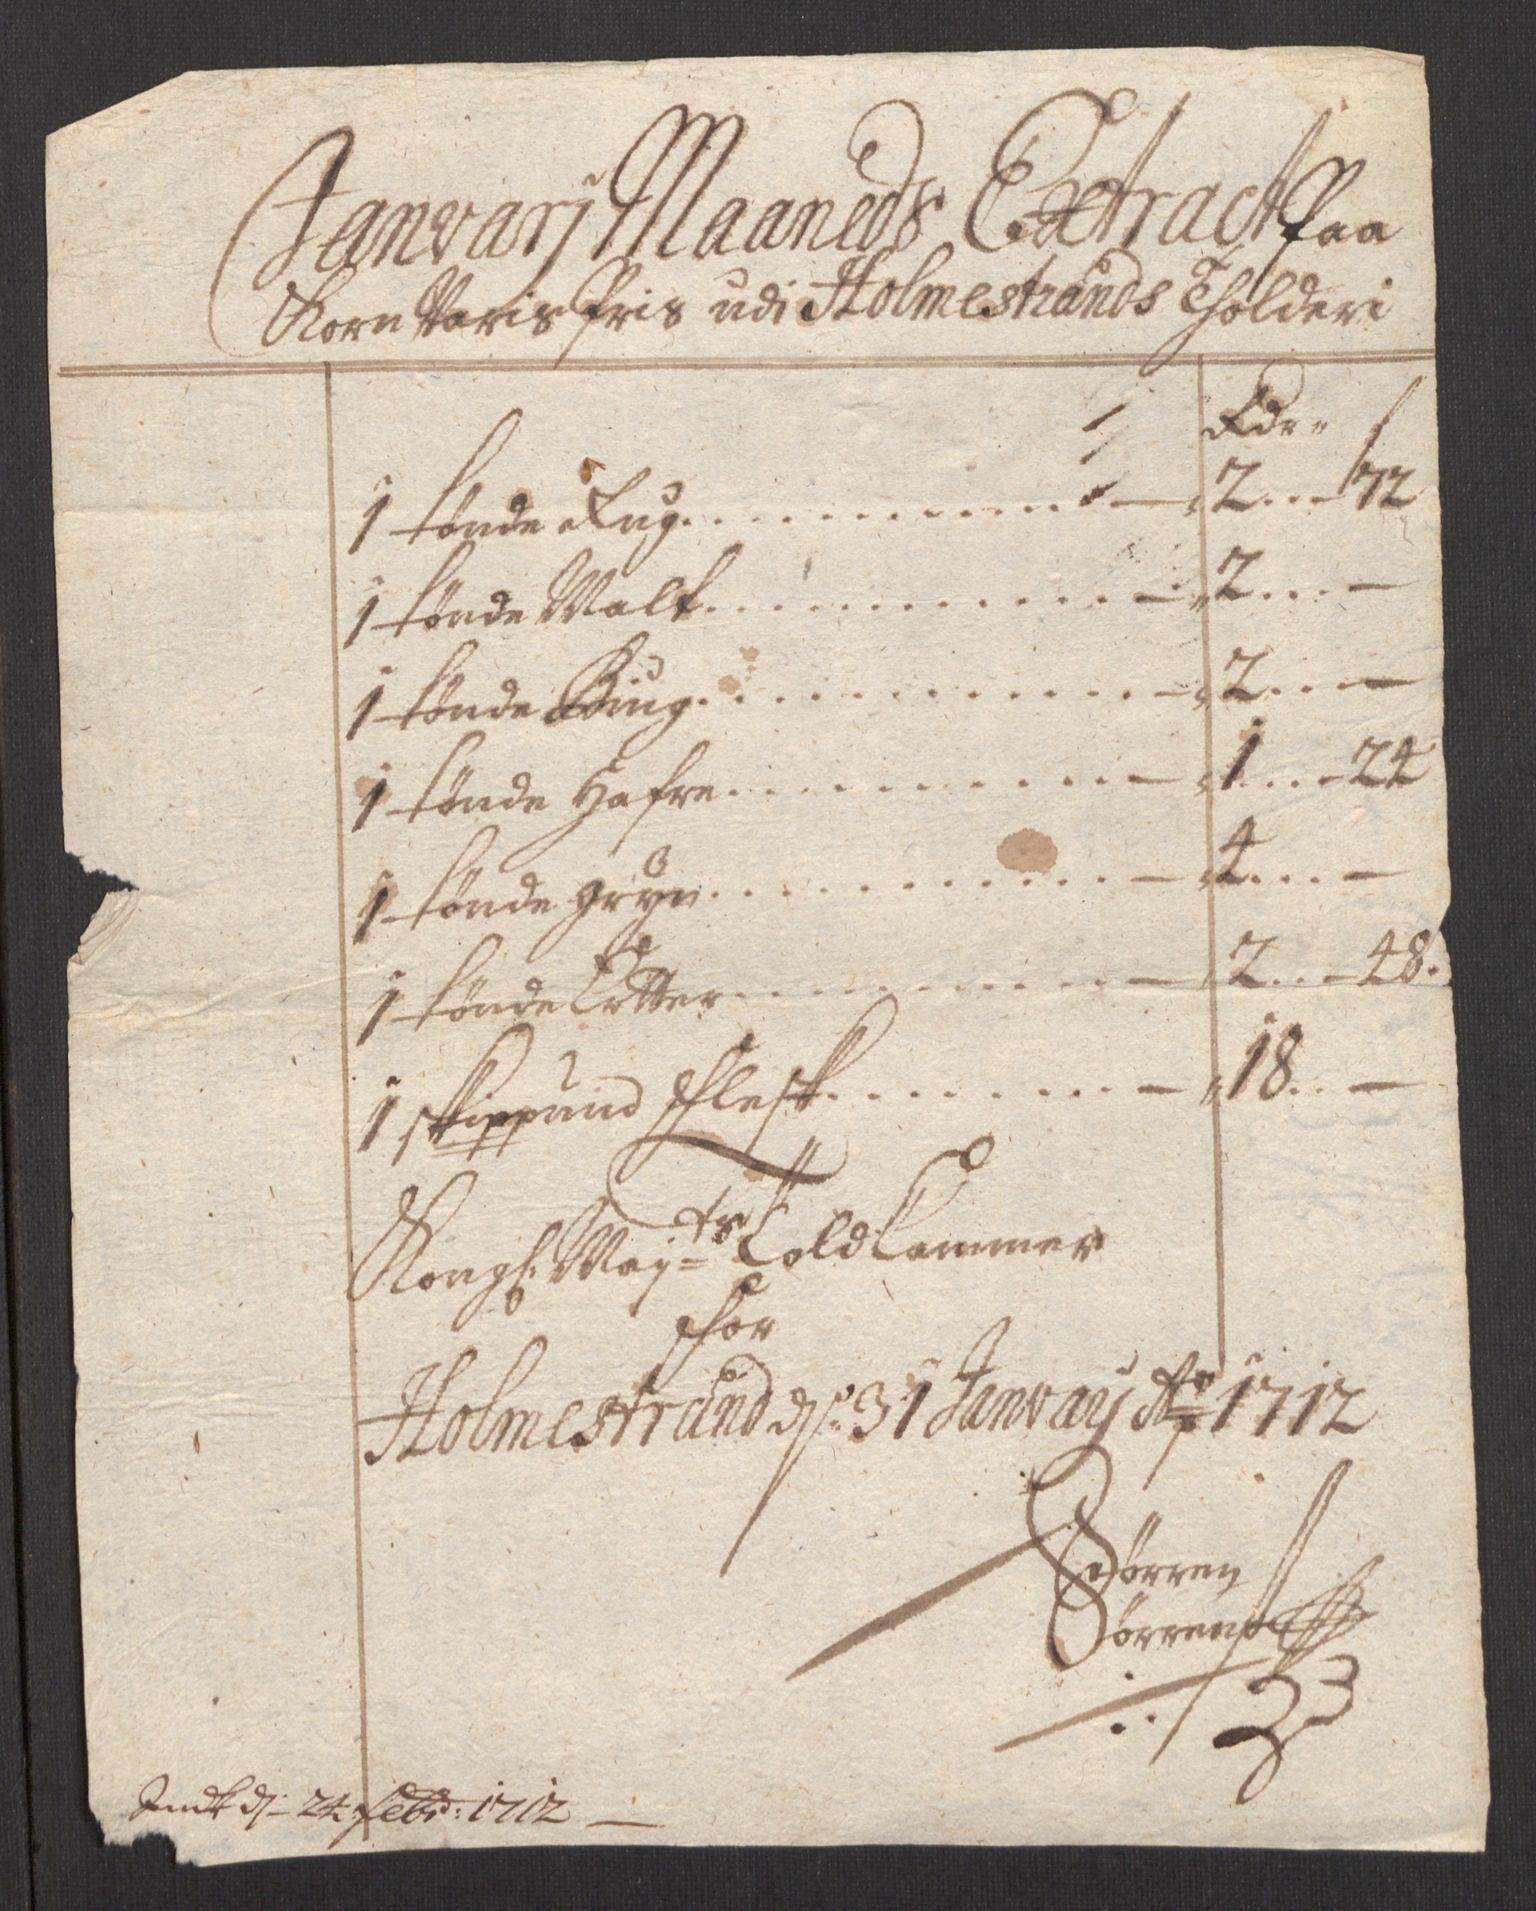 Janvarj Maaneds Extract paa
Korn Varis Pris udi Holmestrands Tholderi
Rdr ß
1 tønde Rug - 2 - 72
1 tønde Malt - 2 -
1 tønde Biug - 2 -
1 tønde Hafre - 1 - 24
1 tønde gryn - 4 -
1 tønde Ertter - 2 - 48.
1 skippund Flesk - 18 -
Kongl: Maÿts Told Cammer
for
Holmestrand d: 31 Janvarj Ao 1712
Sörren
Sörrens
Indk d: 24 Febr: 1712